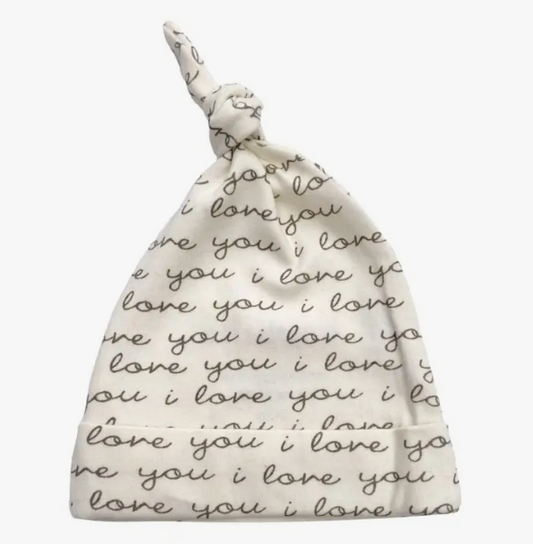 i you
i love you
love you i love
you i love yo
love you i love
you i love yo
love you i love y
you i love you i lo
love you i love yo
you i love you i
love you i love yo